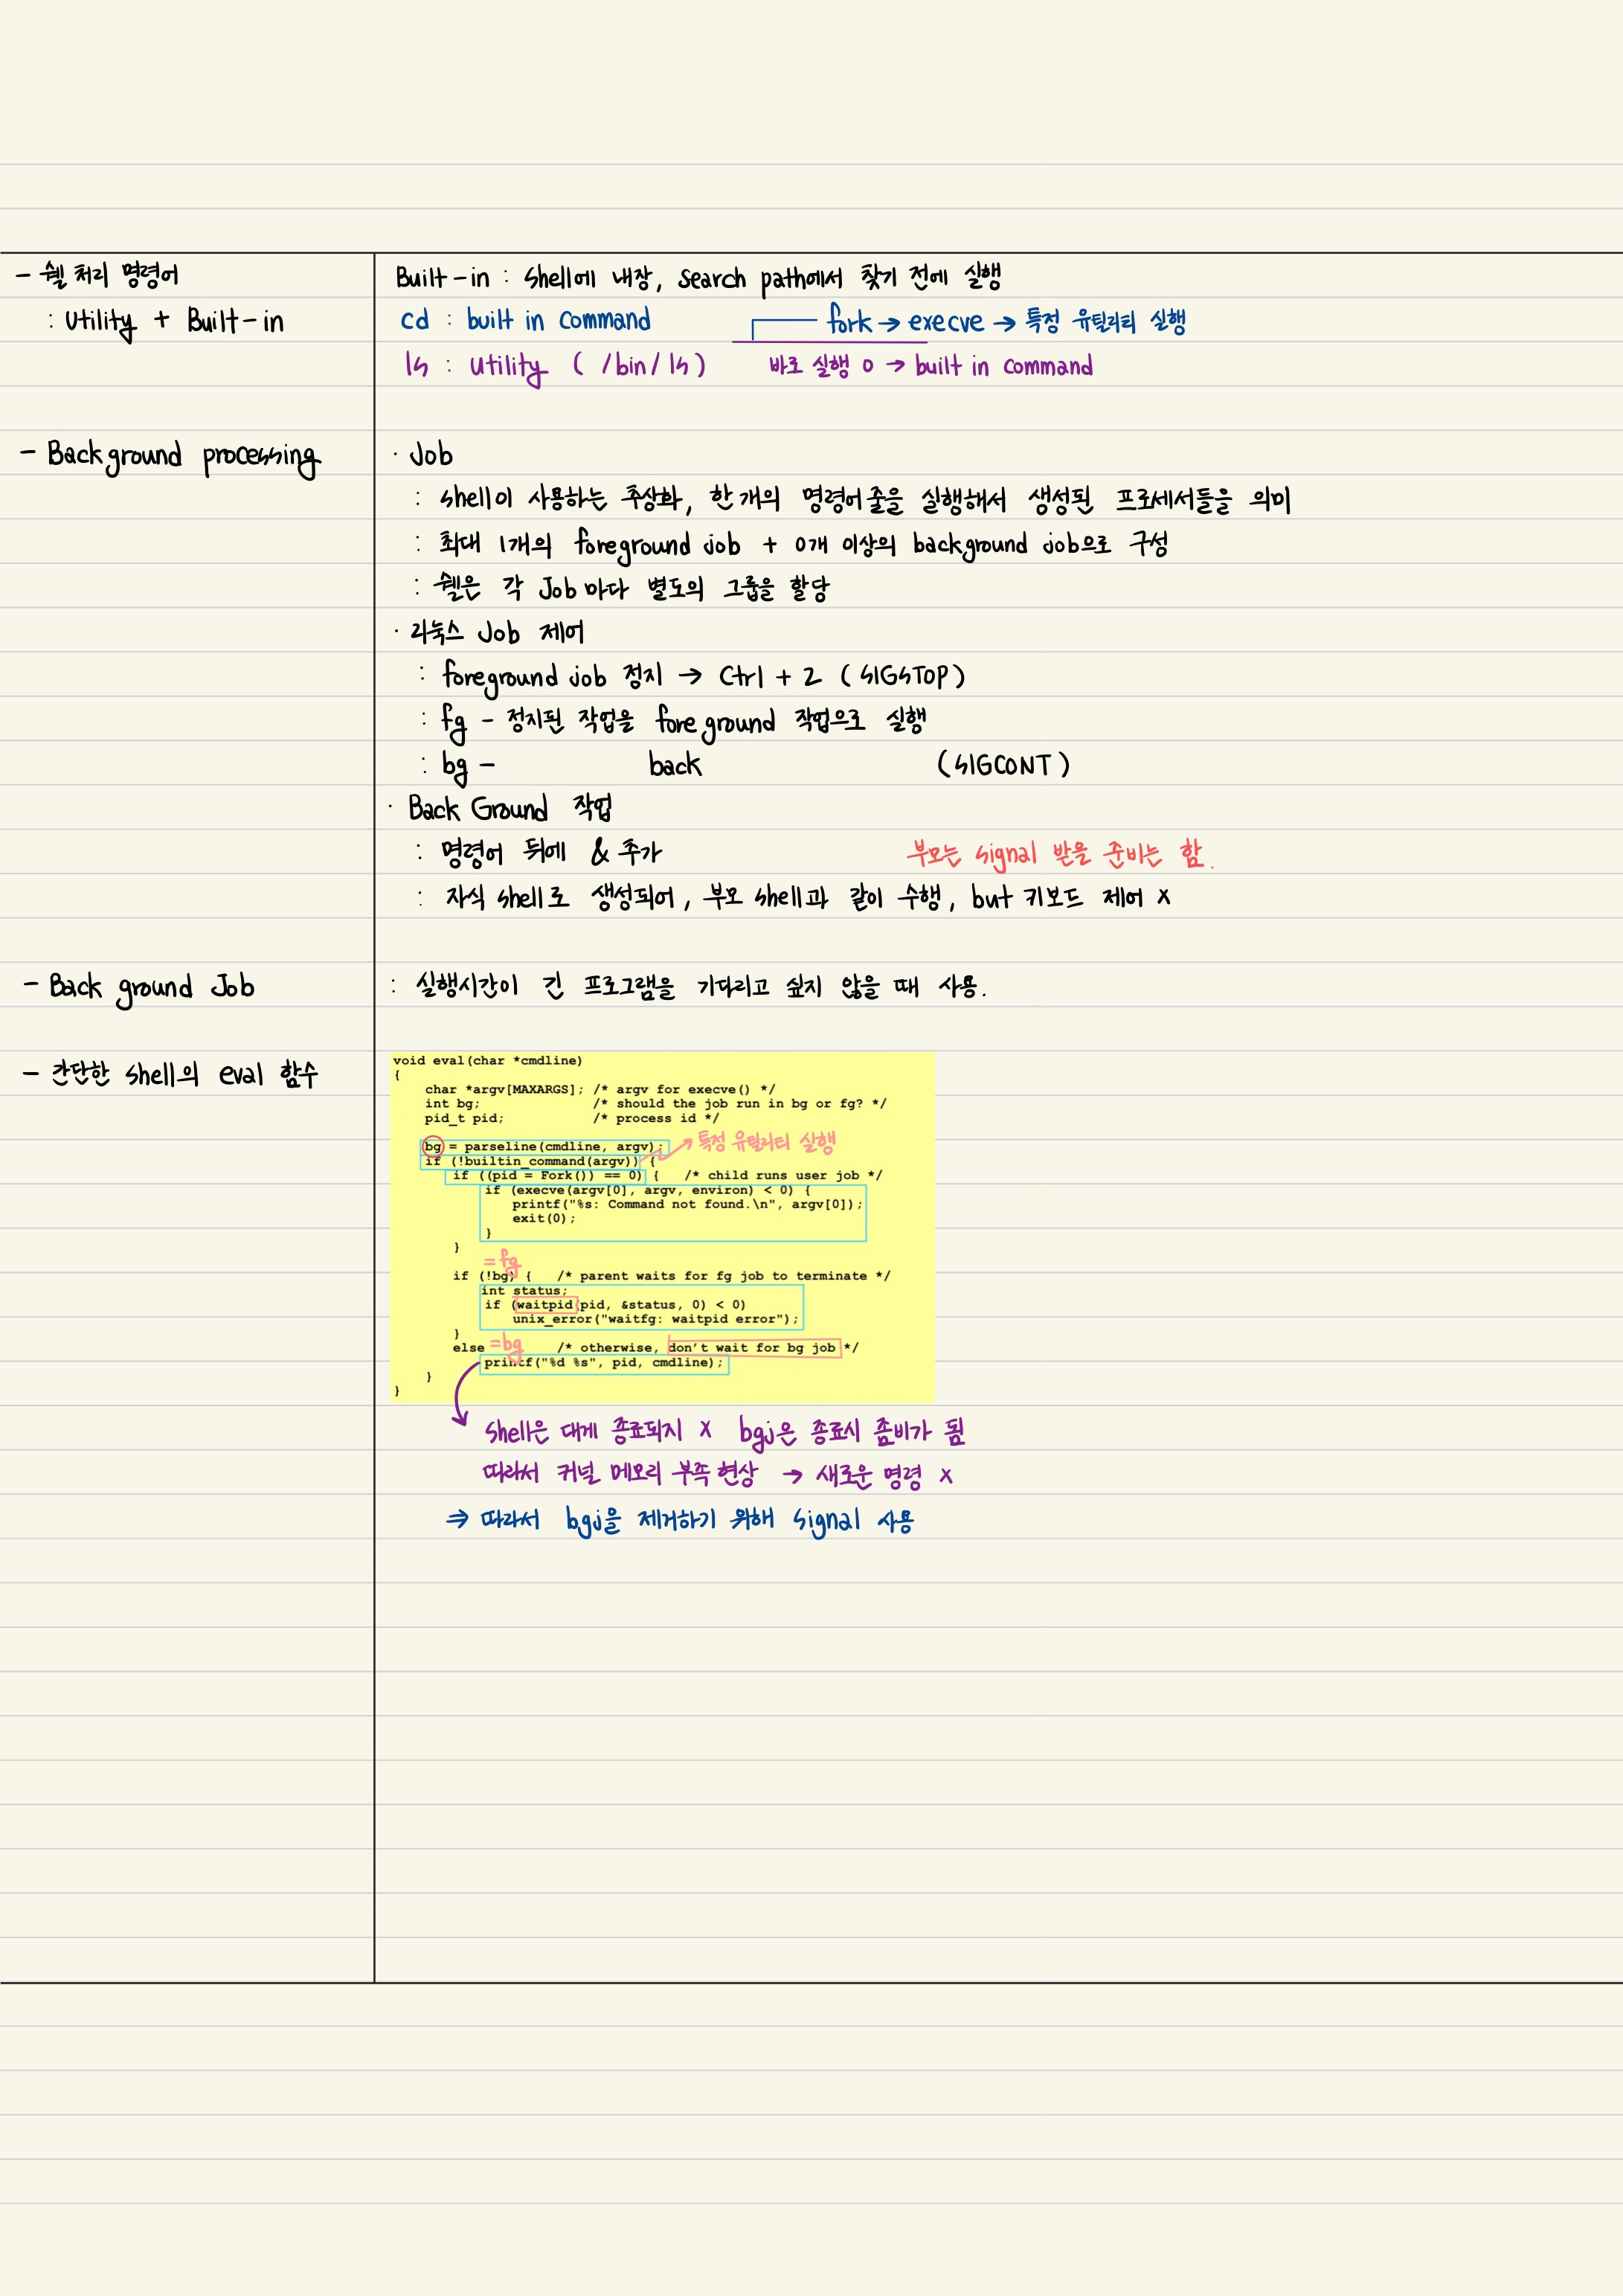 - 쉘 처리 명령어
: Utility + Built-in
Built-in : Shell에 내장, search path에서 찾기 전에 실행
cd : built in command
fork → execve → 특정 유틸리티 실행
ls : Utility ( /bin/ls )
바로 실행 O → built in command
- Background processing
· Job
: shell이 사용하는 추상화, 한 개의 명령어 줄을 실행해서 생성된 프로세서들을 의미
: 최대 1개의 foreground job + 0개 이상의 background job으로 구성
: 쉘은 각 Job 마다 별도의 그룹을 할당
· 리눅스 Job 제어
: foreground job 정지 → Ctrl + Z (SIGSTOP)
: fg - 정지된 작업을 foreground 작업으로 실행
: bg - back (SIGCONT)
· Back Ground 작업
: 명령어 뒤에 & 추가
부모는 signal 받을 준비는 함.
: 자식 shell로 생성되어, 부모 shell과 같이 수행, but 키보드 제어 X
- Back ground Job
: 실행시간이 긴 프로그램을 기다리고 싶지 않을 때 사용.
- 간단한 shell의 eval 함수
void eval(char *cmdline)
{
char *argv[MAXARGS]; /* argv for execve() */
int bg; /* should the job run in bg or fg? */
pid_t pid; /* process id */
bg = parseline(cmdline, argv);
→ 특정 유틸리티 실행
if (!builtin_command(argv)) {
if ((pid = Fork()) == 0) { /* child runs user job */
if (execve(argv[0], argv, environ) < 0) {
printf("%s: Command not found.\n", argv[0]);
exit(0);
}
}
= fg
if (!bg) { /* parent waits for fg job to terminate */
int status;
if (waitpid(pid, &status, 0) < 0)
unix_error("waitfg: waitpid error");
}
else =bg /* otherwise, don't wait for bg job */
printf("%d %s", pid, cmdline);
}
}
shell은 대게 종료되지 X bgj은 종료시 좀비가 됨
따라서 커널 메모리 부족 현상 → 새로운 명령 X
⇒ 따라서 bgj을 제거하기 위해 signal 사용